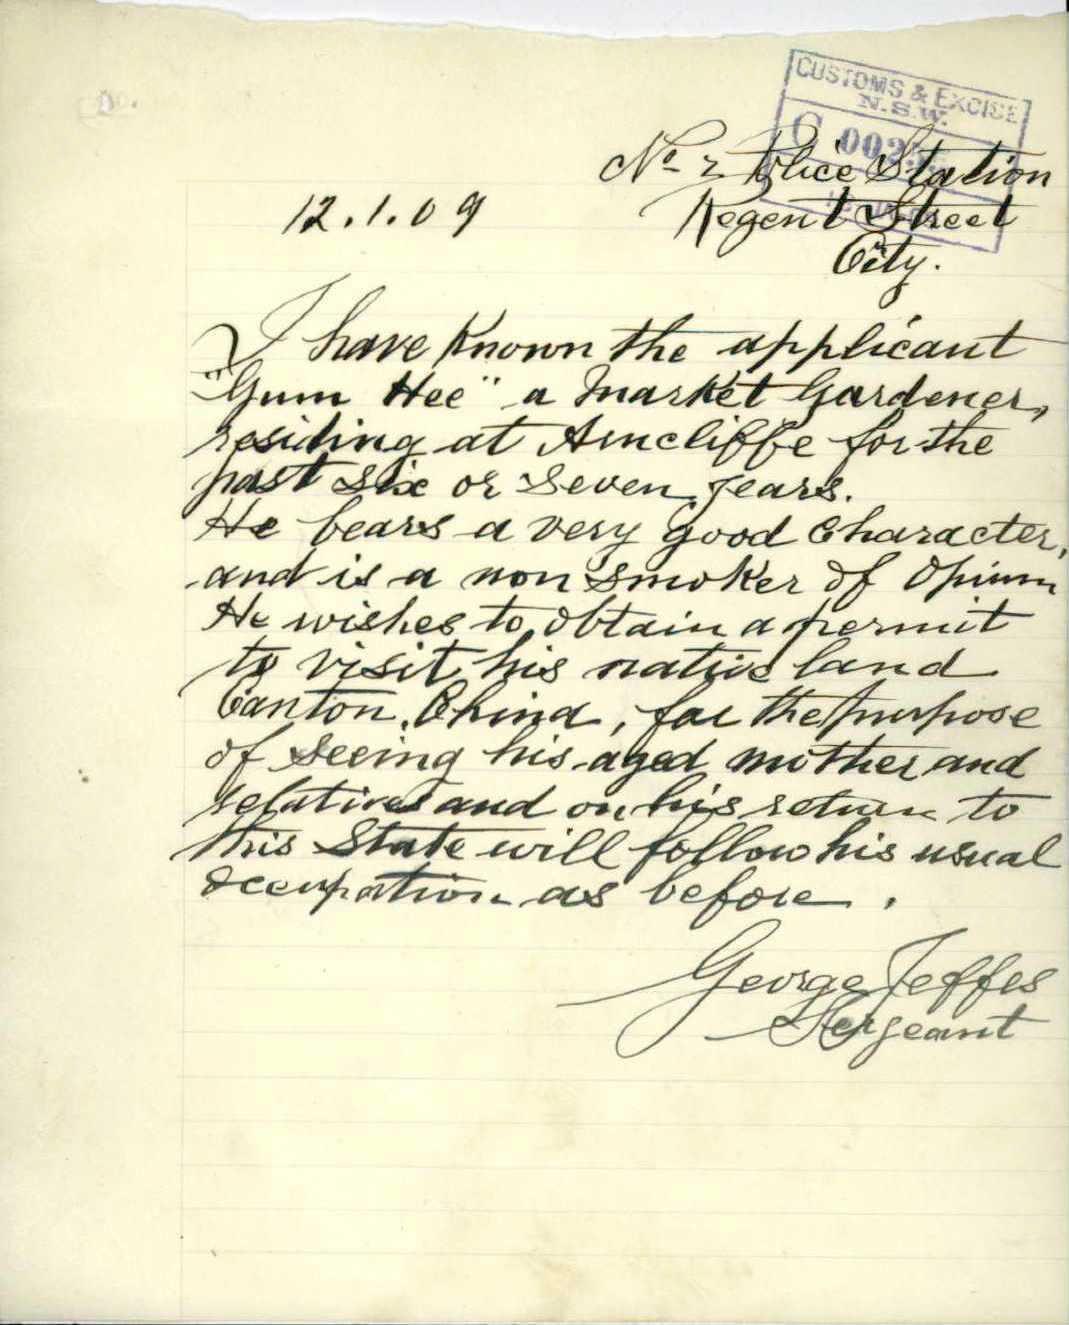 CUSTOMS & EXCISE
N.S.W.
C 002
No 2 Police Station
12.1.09
Regent Street
City.
I have known the applicant
"Gum Hee" a Market Gardener,
residing at Arncliffe for the
past six or seven years.
He bears a very good character,
and is a non smoker of Opium
He wishes to obtain a permit
to visit his native land
Canton, China, for the purpose
of seeing his aged mother and
relatives and on his return to
this State will follow his usual
occupation as before.
George Jeffes
Sergeant